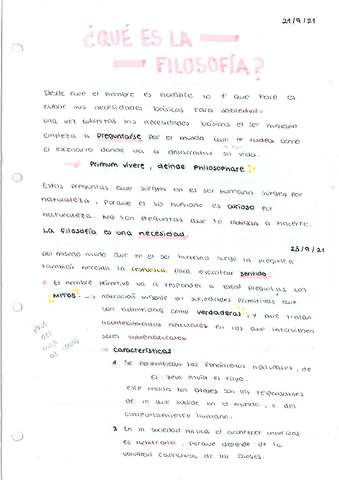 21/9/21
¿QUÉ ES LA
FILOSOFÍA?
Desde que el hombre es hombre lo 1º que hace es
cubrir sus necesidades básicas para sobrevivir.
Una vez cubiertas las necesidades básicas el ser humano
empieza a preguntarse por el mundo que le rodea como
el escenario donde va a desarrollar su vida.
→ Primum vivere, deinde philosophare
Estas preguntas que surgen en el ser humano surgen por
naturaleza, porque el ser humano es curioso por
naturaleza. No son preguntas que te obliguen a hacerte.
La filosofía es una necesidad.
23/9/21
Del mismo modo que en el ser humano surge la pregunta
también necesita la respuesta para encontrar sentido.
El hombre primitivo va a responder a estas preguntas con
MITOS --> narración vigente en sociedades primitivas que
son admitidas como verdaderas, y que tratan
acontecimientos naturales en los que intervienen
seres sobrenaturales.
→ Características
1 Se personifican los fenómenos naturales, de
ej: Zeus envía el rayo.
este mito los dioses son los responsables
de lo que sucede en el mundo, y del
comportamiento humano.
2 En la sociedad mítica el acontecer universal
es arbitrario, porque depende de la
voluntad caprichosa de los Dioses.